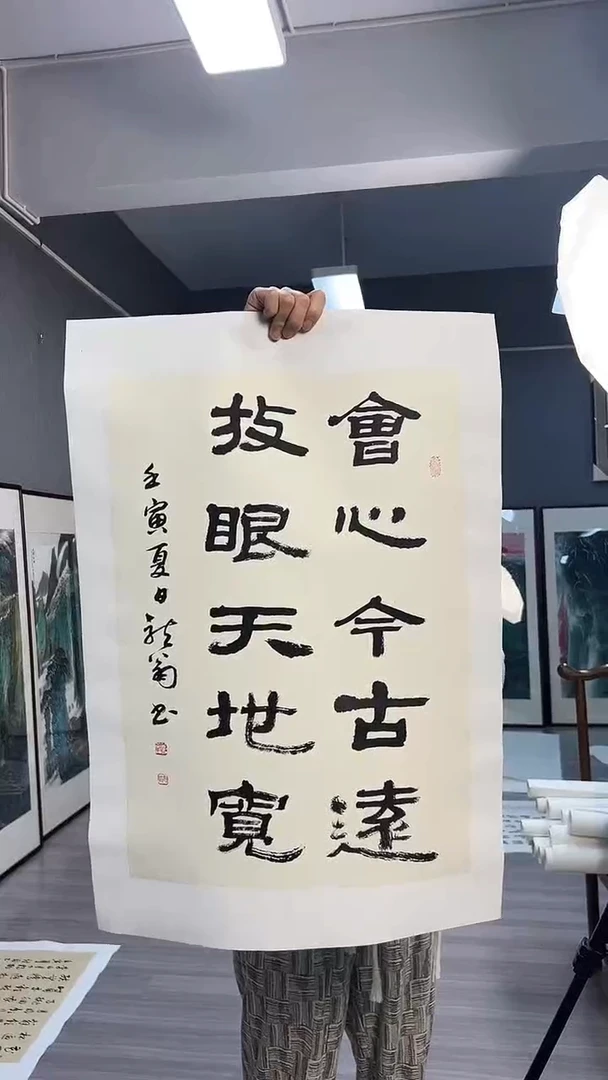 會心今古遠
放眼天地寬
壬寅夏日翁书